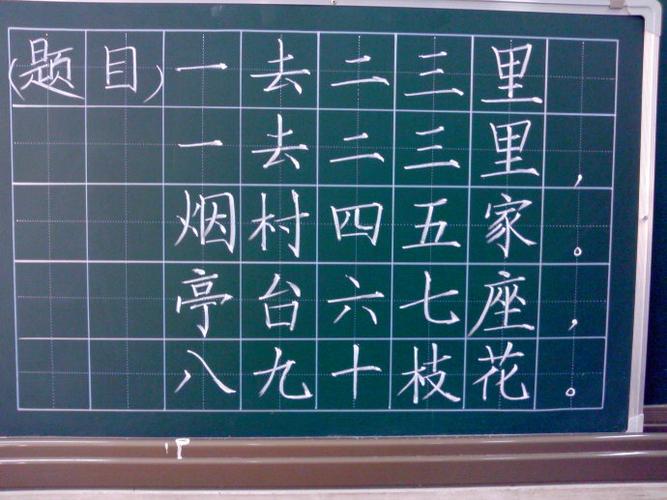 (题目)一去二三里
一去二三里，
烟村四五家。
亭台六七座，
八九十枝花。